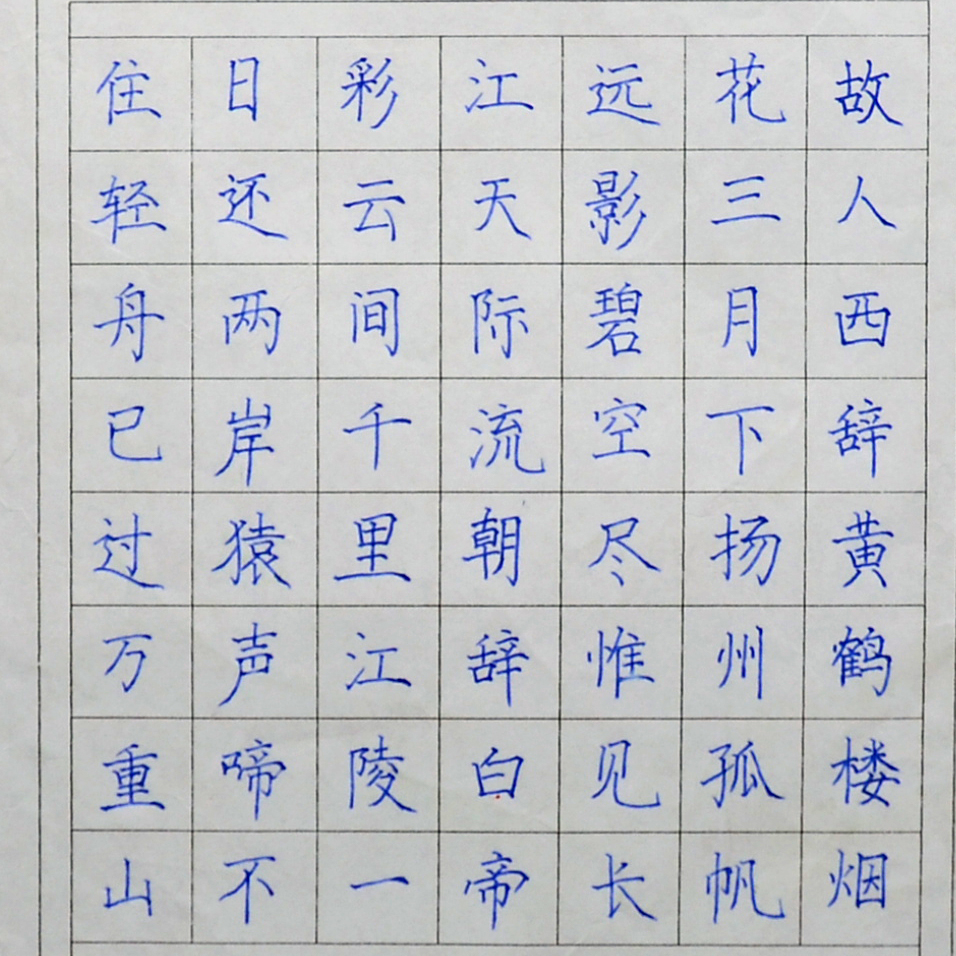 故人西辞黄鹤楼烟
花三月下扬州孤帆
远影碧空尽惟见长
江天际流朝辞白帝
彩云间千里江陵一
日还两岸猿声啼不
住轻舟已过万重山